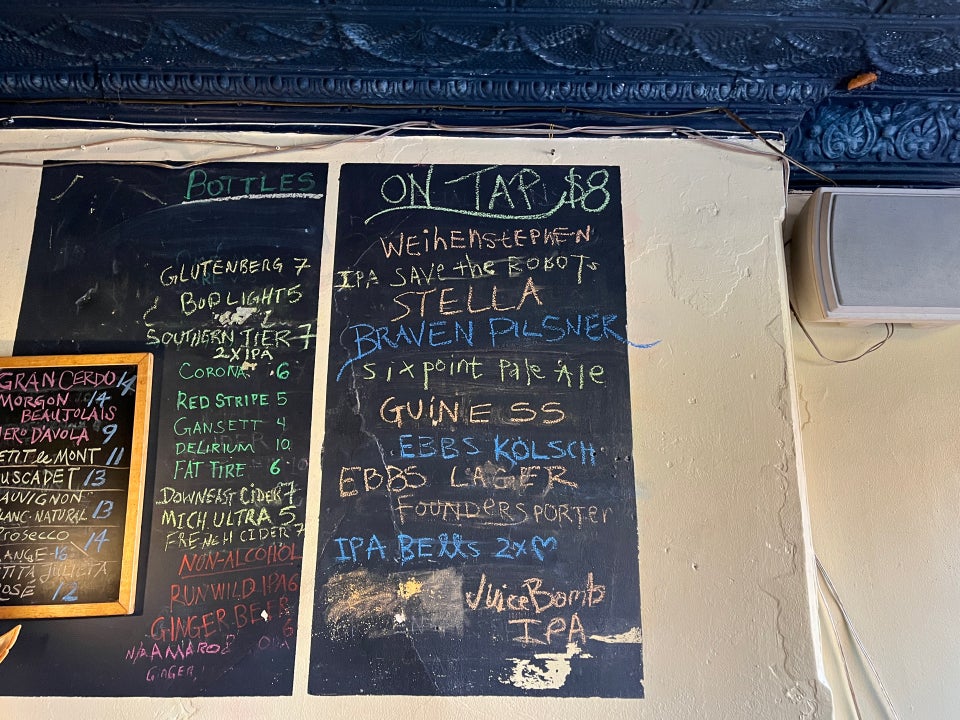 BOTTLES
GLUTENBERG 7
BUD LIGHT 5
SOUTHERN TIER 7
2XIPA
CORONA 6
RED STRIPE 5
GANSETT 4
DELIRIUM 10
FAT TIRE 6
DOWNEAST CIDER 7
MICH ULTRA 5
FRENCH CIDER 7
NON-ALCOHOL
RUN WILD IPA 6
GINGER BEER
6
N/A AMARO 8
GINGER
GRAN CERDO 14
MORGON 14
BEAUJOLAIS
NERO D'AVOLA 9
PETIT le MONT 11
MUSCADET 13
SAUVIGNON
BLANC-NATURAL 13
PROSECCO 14
ANGE 16
TITA JULIETA
ROSE 12
ON TAP $8
WEIHENSTEPHEN
IPA SAVE the ROBOTS
STELLA
BRAVEN PILSNER
sixpoint Pale Ale
GUINESS
EBBS KÖLSCH
EBBS LAGER
FOUNDERS PORTER
IPA BELLS 2x♡
JuiceBomb
IPA